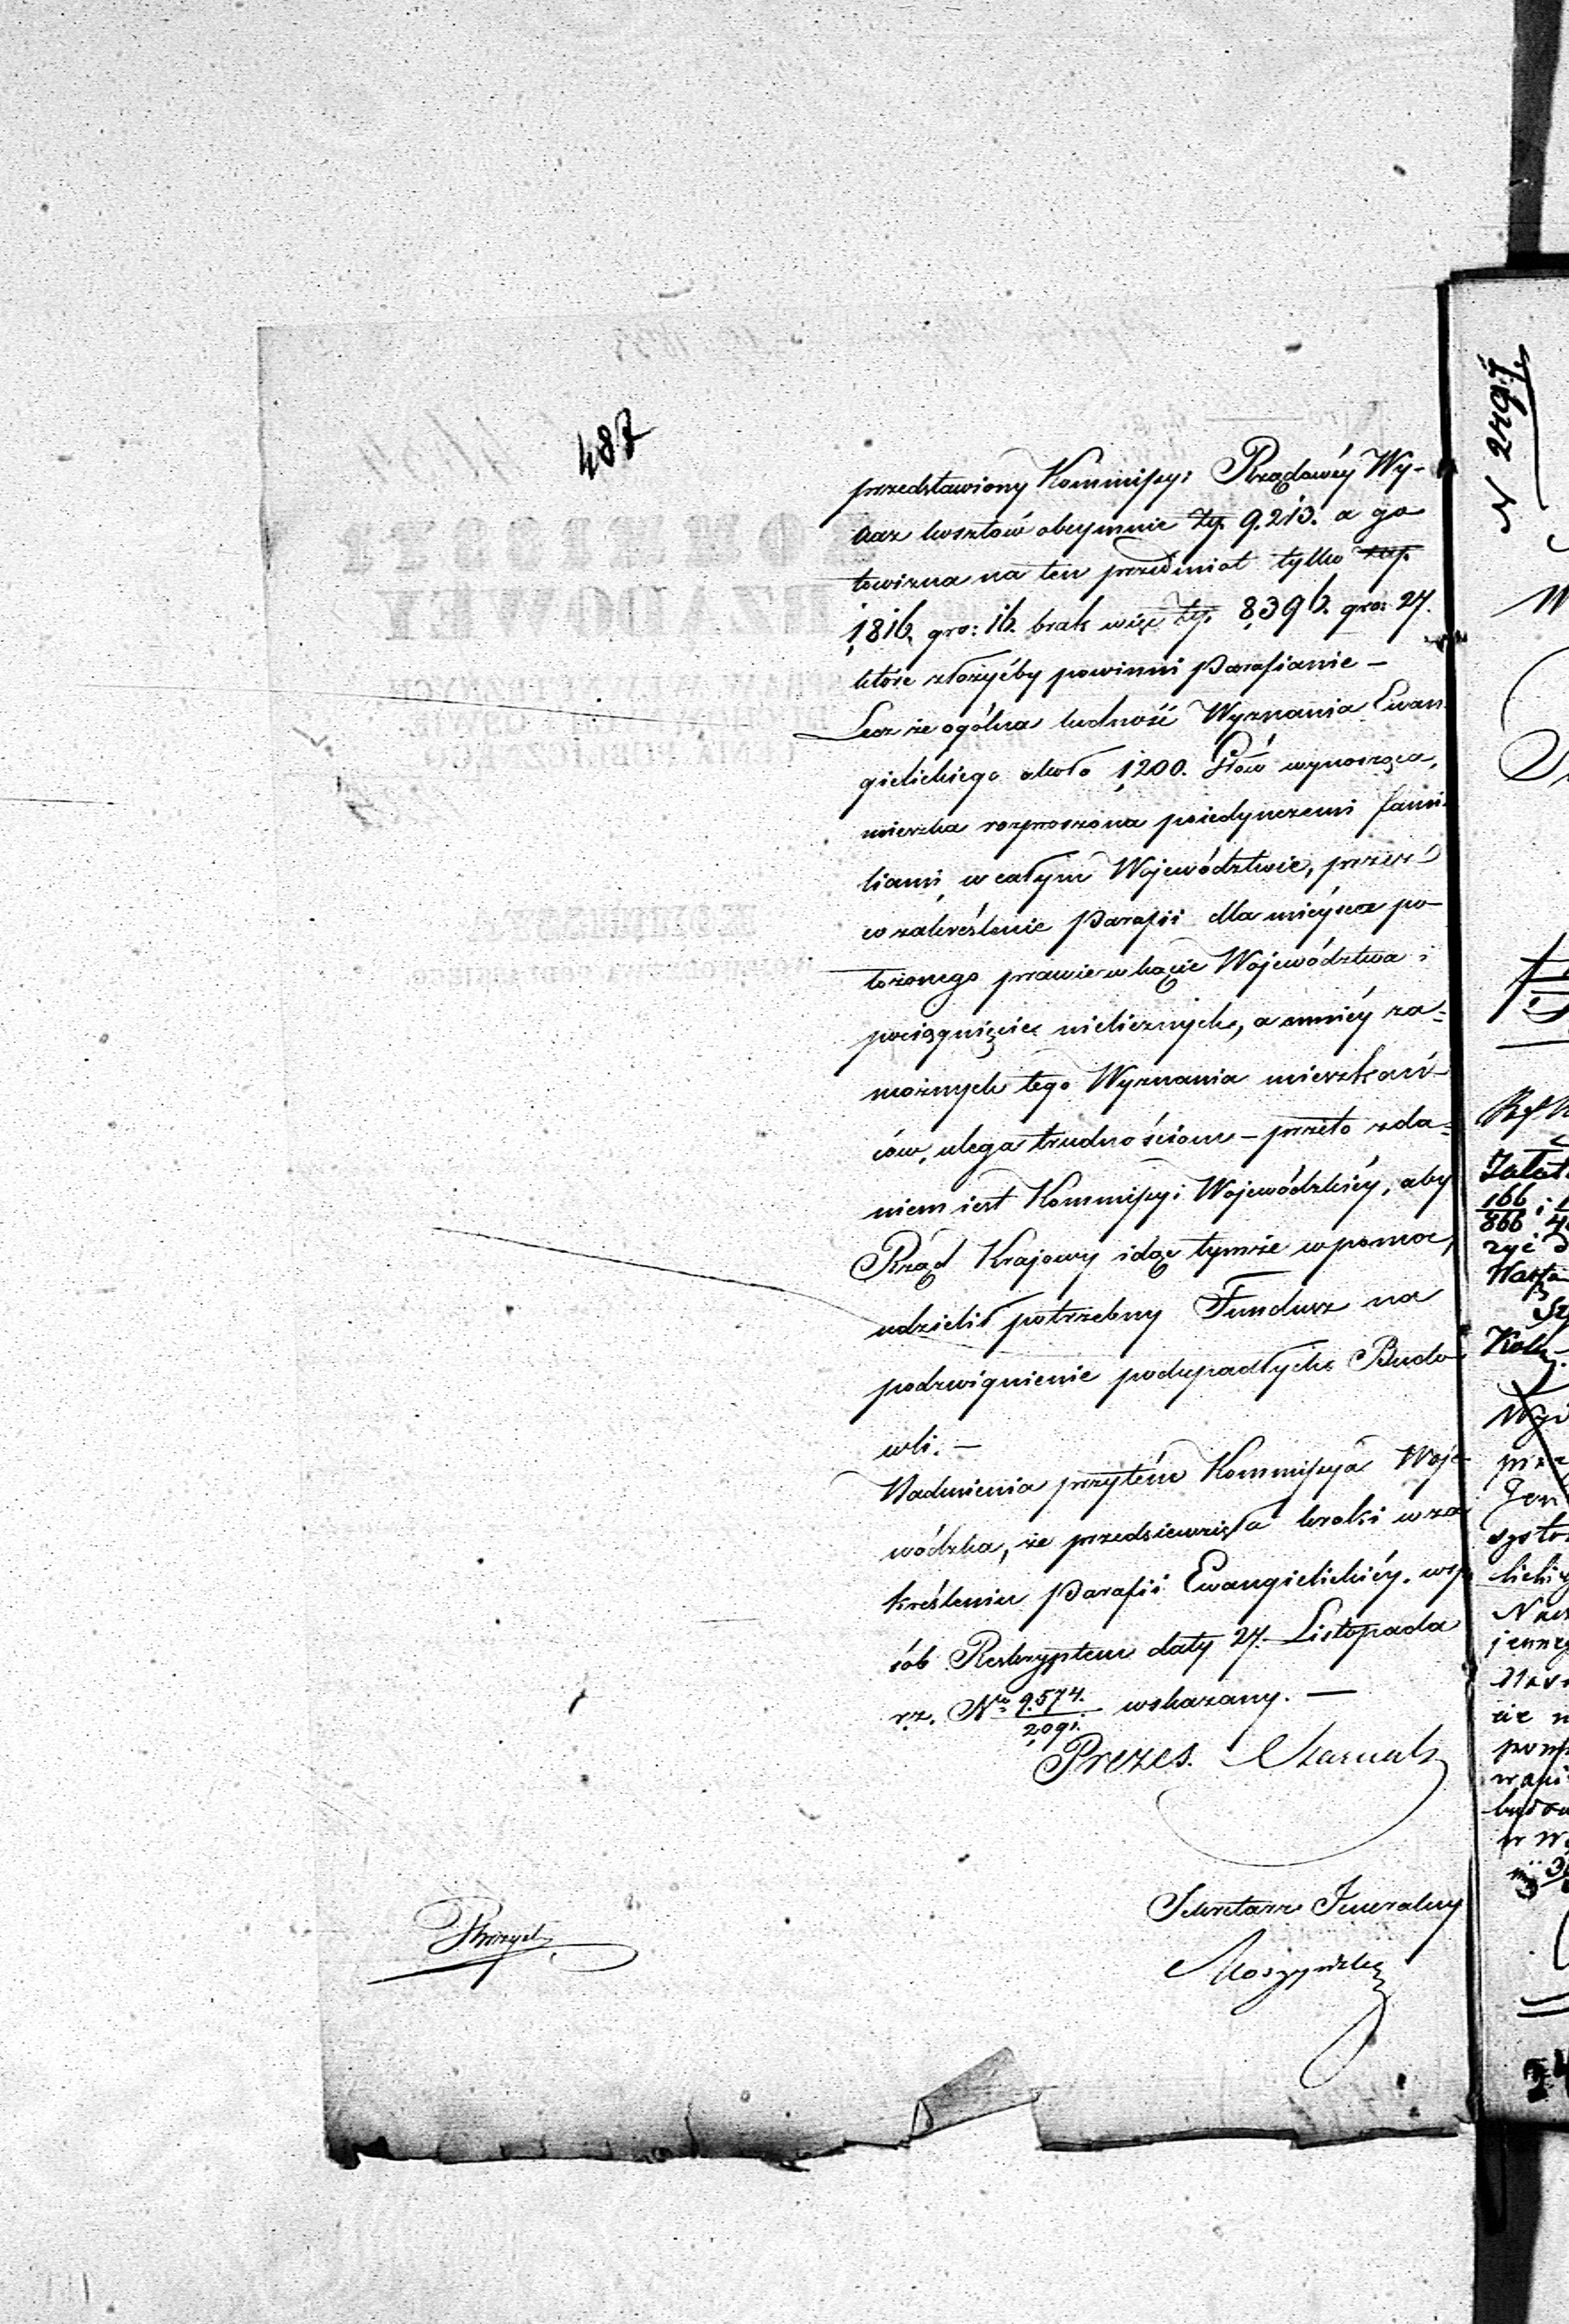 487
przedstawiony Kommissyi Rządowéy Wy-
kaz kosztów obeymuie złp. 9.213. a go
towizna na ten przedmiot tylko złp.
1,816. gro: 16. brak więc złp. 8,396. gro: 27.
które złożyćby powinni Parafianie —
Lecz że ogólna ludność Wyznania Ewan
gielickiego około 1,200. Głów wynosząca,
mieszka rozproszona poiedynczemi fami-
liami, w całym Województwie, przeze
co zakreślenie Parafii dla mieysca po-
łożonego prawie w kącie Województwa i
pociągnięcie nielicznych, a mniéy za=
możnych tego Wyznania mieszkań-
ców, ulega trudnościom — przeto zda=
niem iest Kommissyi Wojewódzkiéy, aby
Rząd Krajowy idąc tymże w pomoc,
udzielił potrzebny Fundusz na
podzwignienie podupadłych Budo-
wli. —
Nadmienia przytém Kommissya Woje-
wódzka, że przedsiewzięła kroki w za
kreśleniu Parafii Ewangielickiéy. w sp
sób Reskryptem daty 27. Listopada
r.z. No 9.574. / 2,091. wskazany. —
Prezes.
Sekretarz Jeneralny
Moszyński
N 2797
166
866
Kalk